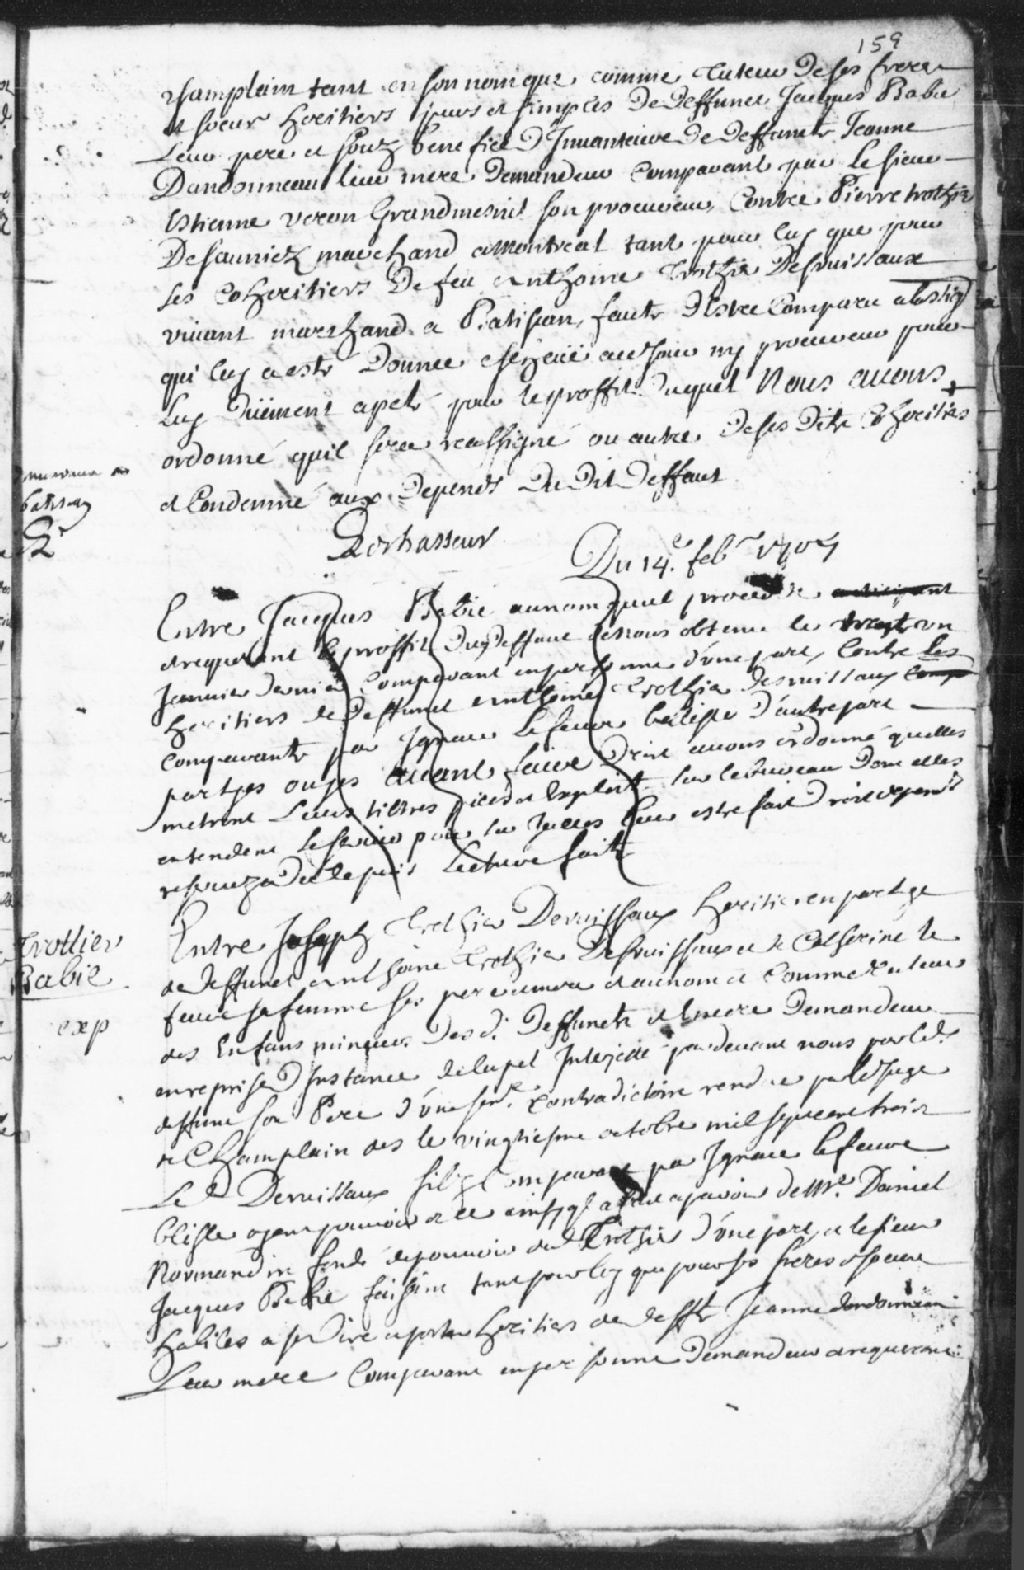 159
Champlain tant en son nom que comme Tuteur De ses freres
et soeur heritiers purs et simples De Deffunct Jacques Babie
Leur pere et souz benefice D'Inuantaire De Deffuncte Jeanne
Dandonneau leur mere Demandeur Comparant par le sieur
Estienne veron Grandmesnil son procureur, Contre Pierre trothier
Desauniez marchand a Montreal tant pour luy que pour
ses coheritiers De feu anthoine Trothier Desruissaux
viuant marchand a Batiscan, faute D'estre Comparu a lassig
qui luy a esté Donnée ny procureur pour
luy Düement apelé pour le proffit Duquel Nous auons
ordonné quil sera reassigné ou autre De ses Dits Coheritiers
et Condemné aux Depends Du Dit Deffaut
Lechasseur
batiscan
Du 14.e febr 1704
Entre Jacques Babie au nom quil procede
et requerant le proffit Du Deffaut De nous obtenu le trente un
Januier Dernier Comparant en personne d'une part, Contre Les
heritiers de Deffunct anthoine Trothier Desruissaux
Comparants par Ignace Lefeure belisle D'autre part
partyes ouyes auant faire Droit auons ordonné quelles
metront Leurs tiltres pieces et Exploit sur le bureau Dont elles
entendent se seruir pour sur Icelles leur estre fait Droit depens
reseruez Lecture faite
Trottier
Babie
exp
Entre Joseph Trothier Deruissaux heritier en partye
de deffunct anthoine Trothier Desruissaux et de Catherine le
feure sa femme ses pere et mere et au nom et Comme Tuteur
des Enfans mineurs Desd. Deffuncts et mere Demandeur
en reprise D'Instance de lapel Interjetté par deuant nous par led.
deffunct son Pere d'une sen.ce contradictoire rendue par le Juge
de Champlain des le vingtiesme octobre mil sept cent trois
Le d. Deruissaux filz Comparant par Ignace lefeure
blisle ayant pouuoir de Mr. Daniel
Normandin fondé de pouuoir dud Trothier d'une part, et le sieur
Jacques Babie faisant tant pour luy que pour ses freres et soeur
habiles a se Dire et porter heritiers de deffte Jeanne dandonneau
Leur mere Comparant en personne Demandeur et requerant